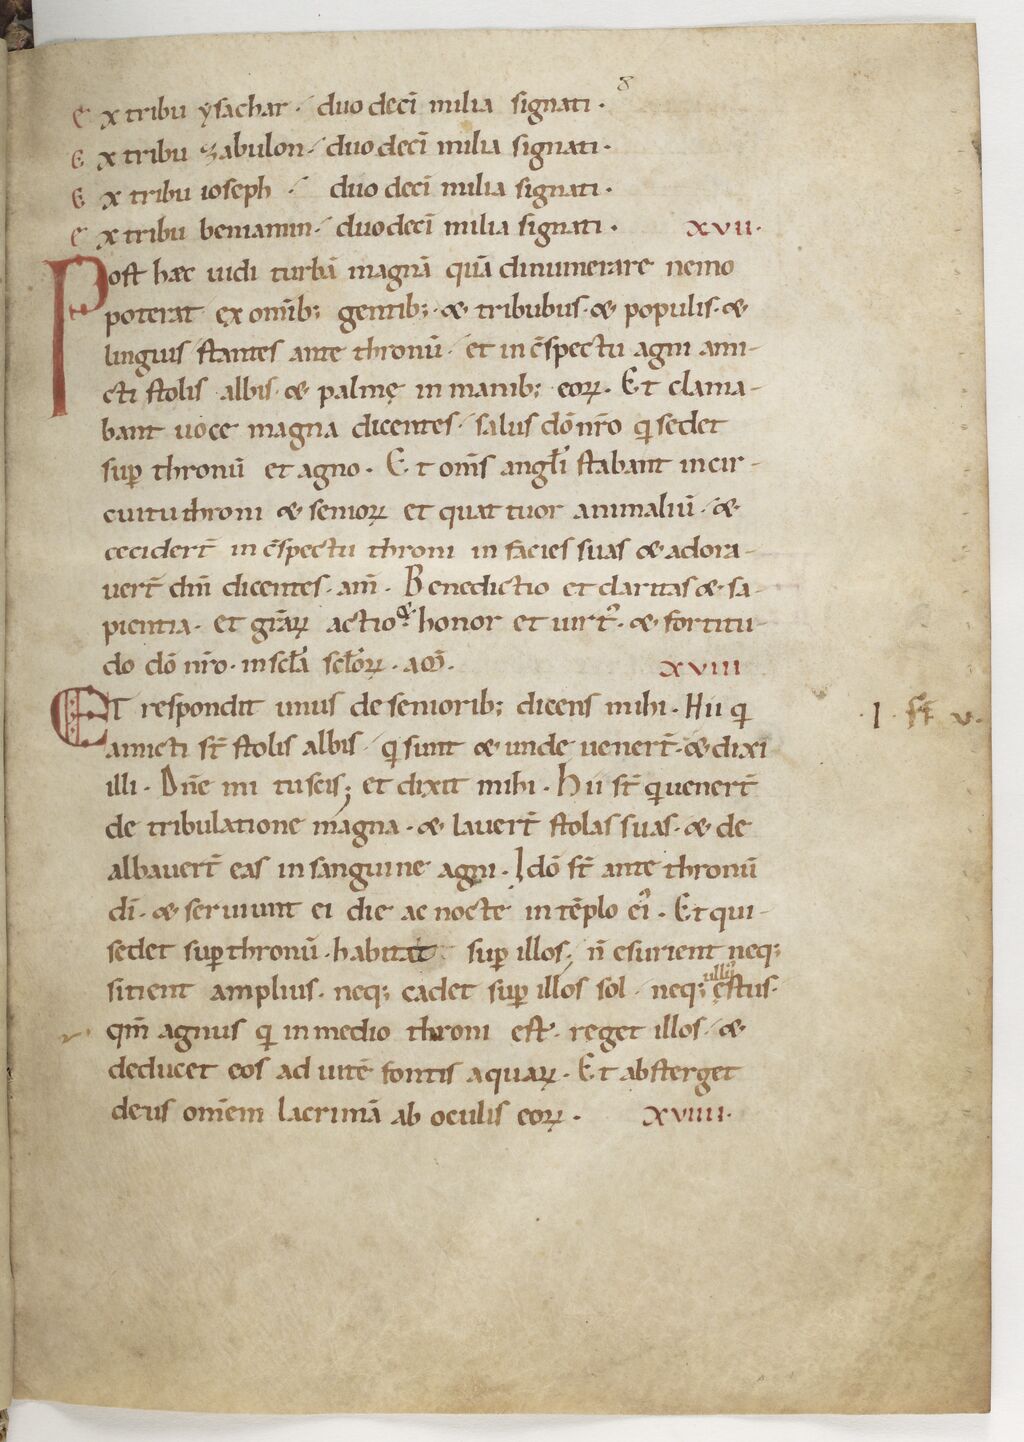 8
Ex tribu ysachar· duodecī milia signati·
Ex tribu zabulon· duodecī milia signati·
Ex tribu ioseph· duodecī milia signati·
Ex tribu beniamin· duodecī milia signati· XVII·
Post hæc uidi turbā magnā quā dinumerare nemo
poterat ex om̄ib; gentib;· & tribubus· & populis· &
linguis stantes ante thronū· et in c̄spectu agni ami-
cti stolis albis· & palmę in manib; eoꝝ· Et clama-
bant uoce magna dicentes· salus dō nr̄o qi sedet
suꝑ thronū et agno· Et om̄s angl̄i stabant in cir-
cuitu throni & senioꝝ et quattuor animaliū· &
cecidert̄ in c̄spectu throni in facies suas & adora-
uert̄ dn̄i dicentes· am̄· Benedictio et claritas & sa-
pientia· et gr̄aꝝ actio· & honor et uirt᾿· & fortitu-
do dō nr̄o· in sc̄la scl̄oꝝ· am̄· XVIII
ET respondit unus de seniorib; dicens mihi· Hii qi
amicti st̄ stolis albis· qi sunt & unde uenert̄· & dixi
illi· Dn̄e mi tu scis; et dixit mihi· Hii st̄ qi uenert̄
de tribulatione magna· & lauert̄ stolas suas· & de
albauert̄ eas in sanguine agni· Idō st̄ ante thronū
dī· & seruiunt ei die ac nocte in tēplo ei᾿· Et qui-
sedet suꝑ thronū· habitat suꝑ illos; n̄ esurient neq;
sitient amplius· neq; cadet suꝑ illos sol· neq; ull᾿ ęstus·
qm̄ agnus qi in medio throni est· reget illos· &
deducet eos ad uitę fontis aquaꝝ· Et absterget
deus om̄em lacrimā ab oculis eoꝝ· XVIIII·